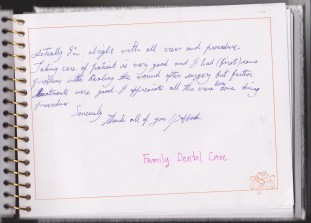 Actually I'm alright with all view and procedure.
Taking care of patient is very good and I had (first) some
problem with healing the wound after surgery but further
treatments were good. I appreciate all the care done during
procedure.
Sincerely
Thank all of you
Family Dental Care